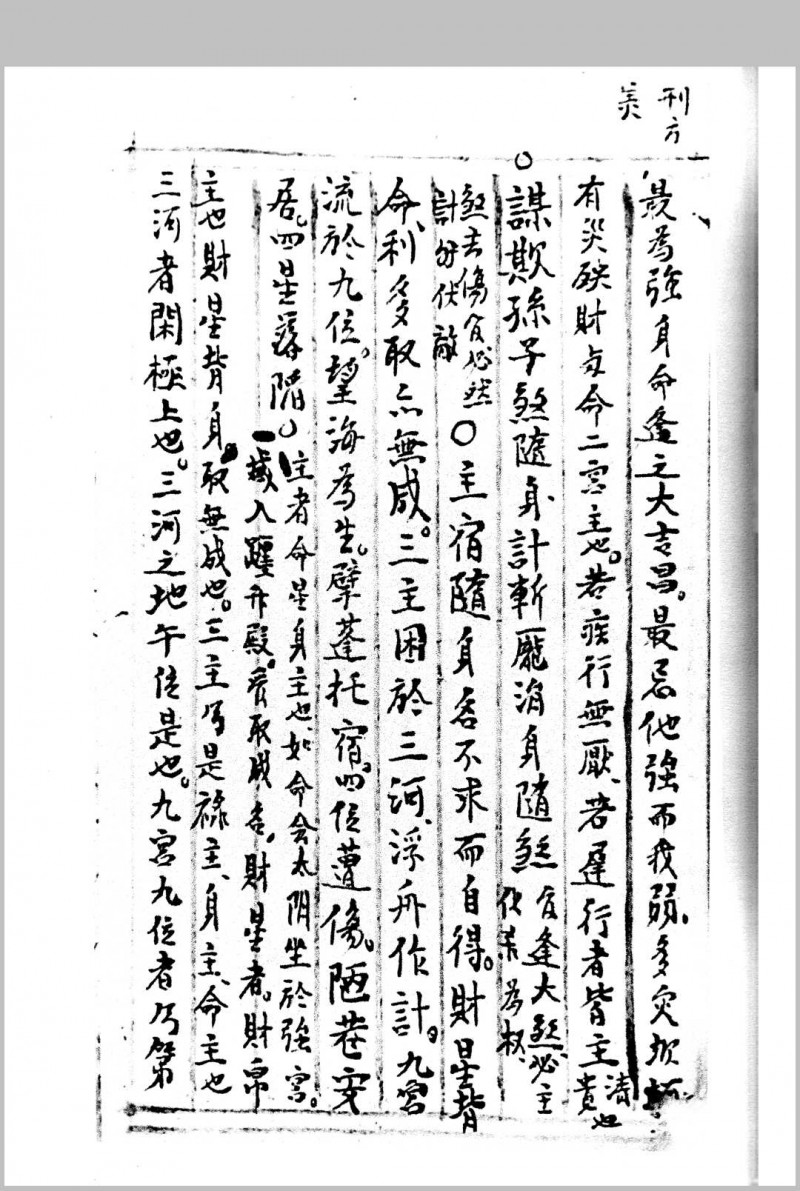 刑方
最為強身命逢之大吉昌。最忌他強而我弱。多災
有災殃財与命二宮主也。若疾行無厭、若遲行者皆主清貴也
謀欺孫子煞隨身計斬龐涓身隨煞
身逢大煞必主
化煞為权
煞去傷官必然
計分伏敵
○主宿隨身名不求而自得。財星背
命、利多取亦無成。三主困於三河、浮舟作計。九宮
流於九位。望海為生。擘蓬托宿。四位遭傷。陋巷安
居。四星落陷。
主者命星身主也、如命会太阴坐於強宮。
一歲入躔升殿。貴取成名。財星者。財帛
主也財星背身。取無成也。三主乃是祿主、身主、命主也
三河者閑極上也。三河之地午位是也。九宮九位者乃第